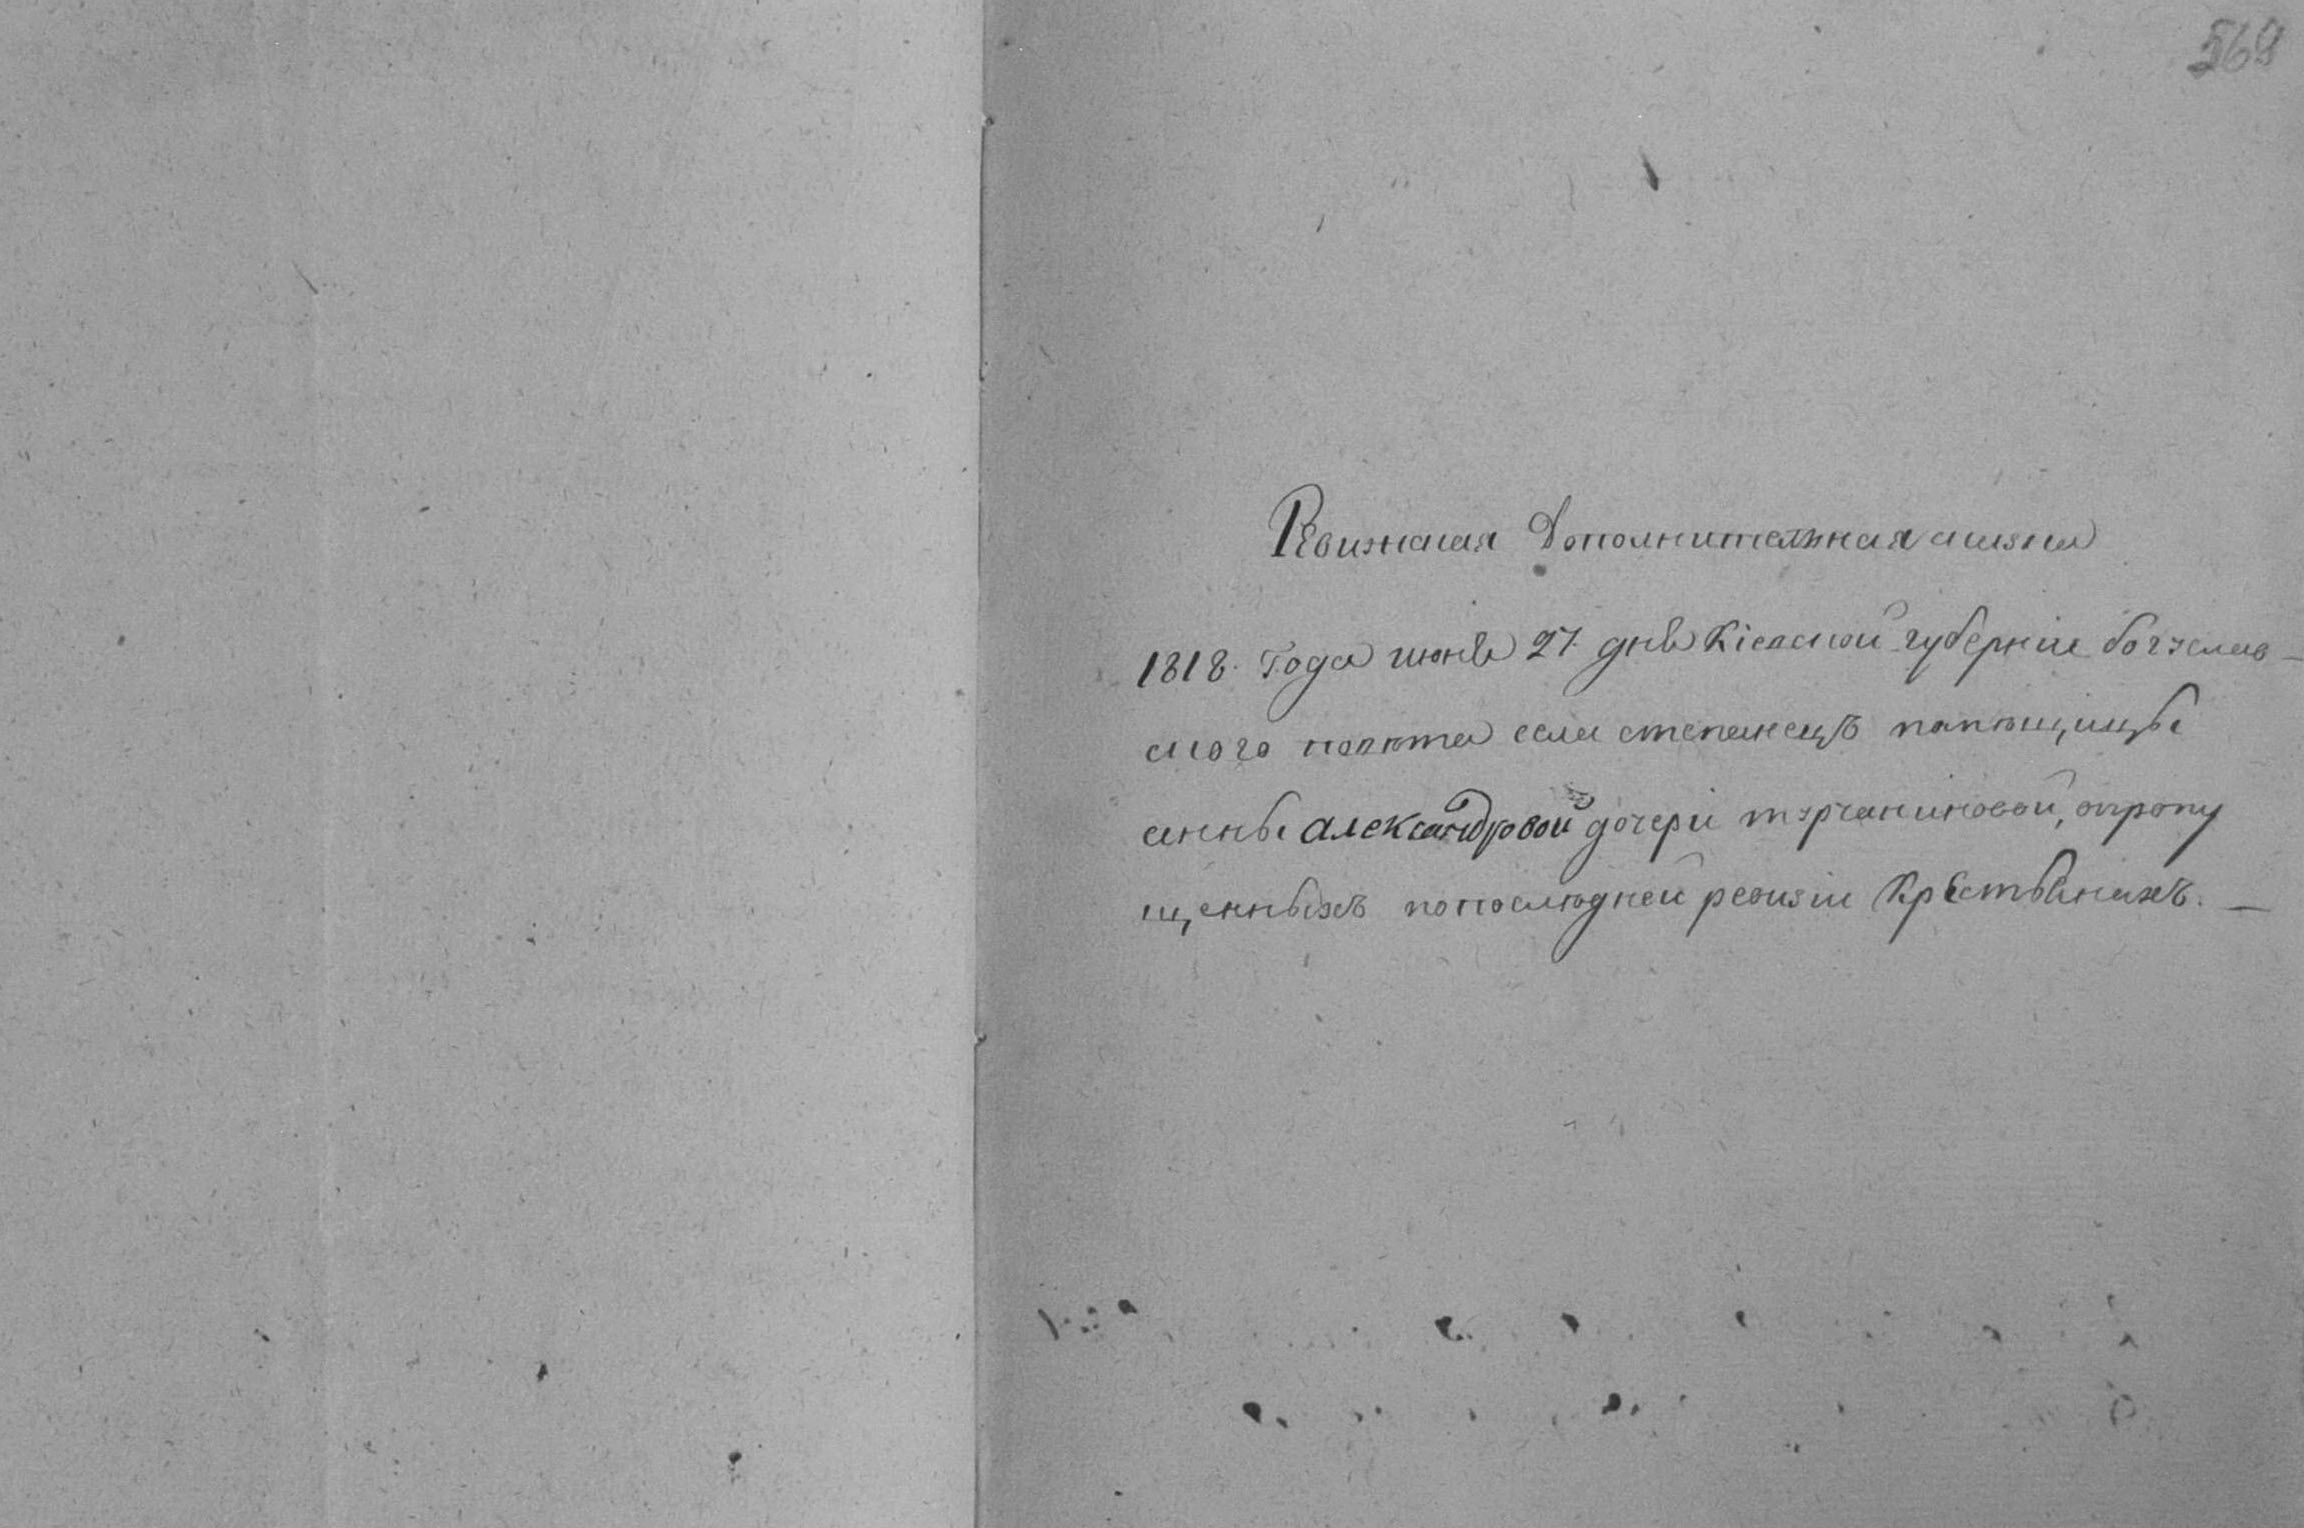 569
Ревижская Дополнительная сказка
1818. Года июня 27. дня Кіевской губерніи богуслав-
ского повѣта села степанецъ помѣщицы
анны александровой дочери турчаниновой, опропу
щенныхъ попослѣдней ревизіи Крестьянахъ. —